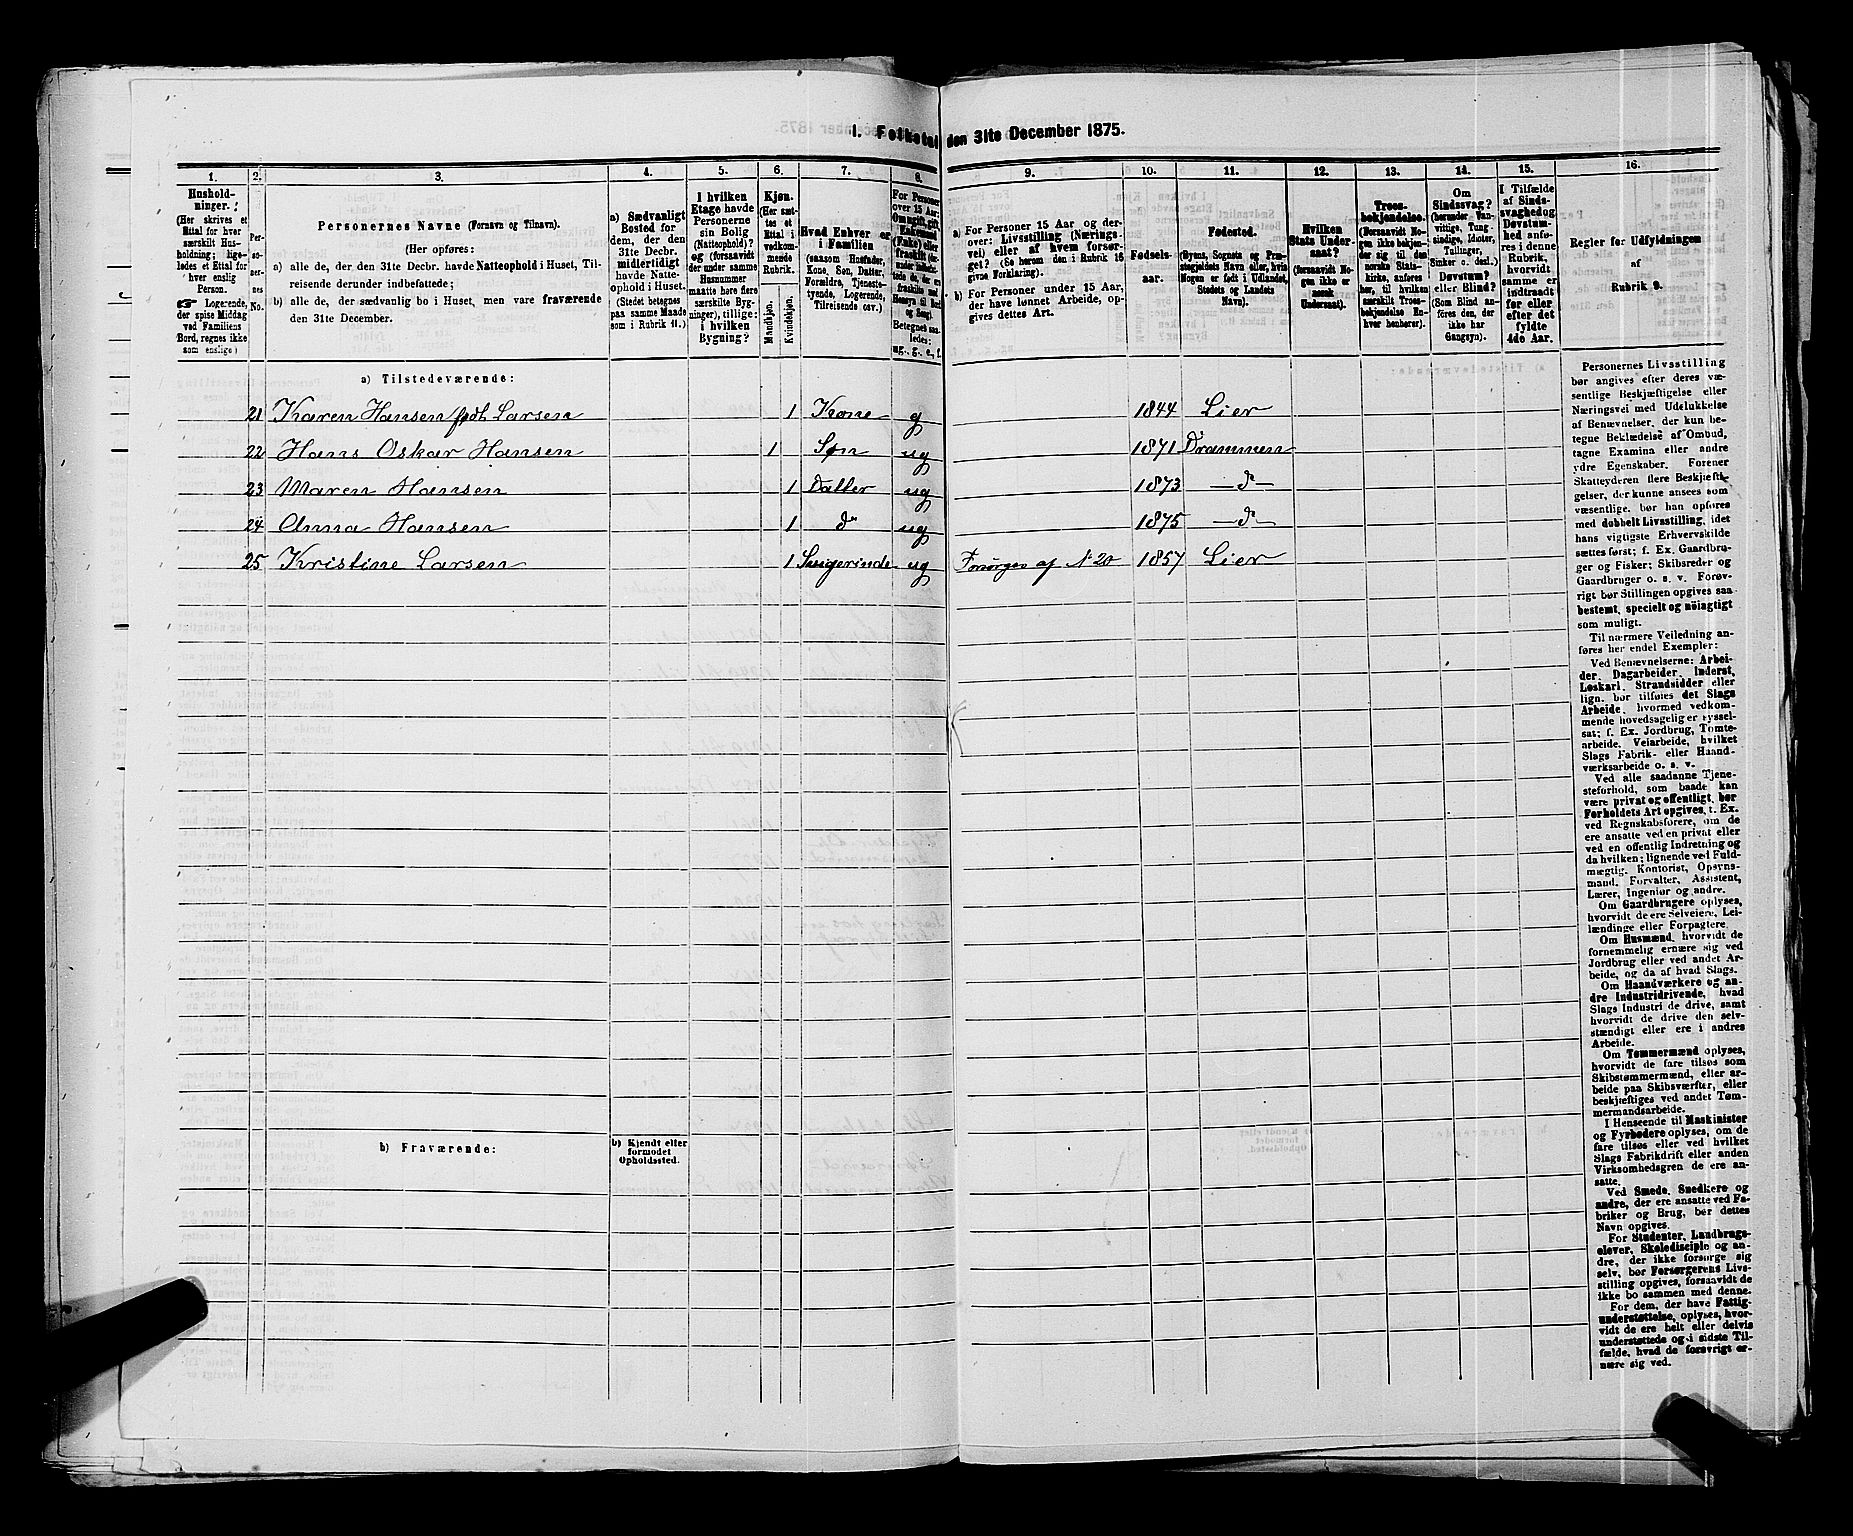 1. Folketal den 31te December 1875.
1. 2. 3. 4. 5. 6. 7. 8. 9. 10. 11. 12. 13. 14. 15. 16.
Hushold-
ninger.
(Her skrives et
Ettal for hver
særskilt Hus-
holdning; lige-
ledes et Ettal for
hver enslig
Person.
☛ Logerende,
der spise Middag
ved Familiens
Bord, regnes ikke
som enslige)
Per-
so-
ner-
nes
No.
Personernes Navne (Fornavn og Tilnavn).
(Her opføres:
a) alle de, der den 31te Decbr. havde Natteophold i Huset, Til-
reisende derunder indbefattede;
b) alle de, der sædvanlig bo i Huset, men vare fraværende
den 31te December.
a) Sædvanligt
Bosted for
dem, der den
31te Decbr.
midlertidigt
havde Natte-
ophold i Huset.
(Stedet betegnes
paa samme Maade
som i Rubrik 11.)
I hvilken
Etage havde
Personerne
sin Bolig
(Natteophold)?
og (forsaavidt
der under samme
Husnummer
maatte høre flere
særskilte Byg-
ninger), tillige:
i hvilken
Bygning?
Kjøn.
(Her sæt-
tes et
Ettal i
vedkom-
mende
Rubrik.
Mandkjøn.
Kvindekjøn.
Hvad Enhver er
i Familien
(saasom Husfader,
Kone, Søn, Datter,
Forældre, Tjeneste-
tyende, Logerende,
Tilreisende osv.)
For Personer
over 15 Aar:
Om ugift, gift,
Enkemand
(Enke) eller
fraskilt
Betegnes saa-
ledes:
ug., g., e., f.
a) For Personer 15 Aar og der-
over: Livsstilling (Nærings-
vei) eller af hvem forsør-
get? (Se herom den i Rubrik 16
givne Forklaring).
b) For Personer under 15 Aar,
der have lønnet Arbeide, op-
gives dettes Art.
Fødsels-
aar.
Fødested.
(Byens, Sognets og Præ-
stegjeldets Navn eller, hvis
Nogen er født i Udlandet,
Stedets og Landets
Navn).
Hvilken
Stats Under-
saat?
(forsaavidt No-
gen ikke er
norsk
Undersaat).
Troes-
bekjendelse.
(Forsaavidt No-
gen ikke bekjen-
der sig til den
norske Stats-
kirke, anføres
her, til hvilken
særskilt Troes-
bekjendelse En-
hver henhører).
Om
Sindssvag?
(herunder Van-
vittige, Tung-
sindige, Idioter,
Tullinger,
Sinker o. desl.)
Døvstum?
eller Blind?
(Som Blind an-
føres den, der
ikke har
Gangsyn).
I Tilfælde
af Sinds-
svaghed og
Døvstum-
hed anfø-
res i denne
Rubrik,
hvorvidt
samme er
indtraadt
før eller
efter det
fyldte
4de Aar.
Regler for Udfyldningen
af
Rubrik 9.
a) Tilstedeværende:
21 Karen Hansen født Larsen 1 Kone g 1844 Lier
22 Hans Oskar Hansen 1 Søn ug 1871 Drammen
23 Maren Hansen 1 Datter ug 1873 — do —
24 Anna Hansen 1 do ug 1875 — do —
25 Kristine Larsen 1 ug Forsørges af N 20 1857 Lier
b) Fraværende:
b) Kjendt eller
formodet
Opholdssted.
Personernes Livsstilling
bør angives efter deres væ-
sentlige Beskjæftigelse eller
Næringsvei med Udelukkelse
af Benævnelser, der kun be-
tegne Beklædelse af Ombud,
tagne Examina eller andre
ydre Egenskaber. Forener
Skatteyderen flere Beskjæfti-
gelser, der kunne ansees som
væsentlige, bør han opføres
med dobbelt Livsstilling, idet
hans vigtigste Erhvervskilde
sættes først; f. Ex. Gaardbru-
ger og Fisker; Skibsreder og
Gaardbruger o. s. v. Forøv-
rigt bør Stillingen opgives saa
bestemt, specielt og nöiagtigt
som muligt.
Til nærmere Veiledning an-
føres her endel Exempler:
Ved Benævnelserne: Arbei-
der, Dagarbeider, Inderst,
Løskarl, Strandsidder eller
lign. bør tilføres det Slags
Arbeide, hvormed vedkom-
mende hovedsagelig er syssel-
sat; f. Ex. Jordbrug, Tomte-
arbeide, Veiarbeide, hvilket
Slags Fabrik- eller Haand-
værksarbeide o. s. v.
Ved alle saadanne Tjene-
steforhold, som baade kan
være privat og offentligt, bør
Forholdets Art opgives, t. Ex.
ved Regnskabsførere, om de
ere ansatte ved en privat eller
ved en offentlig Indretning og
da hvilken; lignende ved Fuld-
mægtig, Kontorist, Opsyns-
mand, Forvalter, Assistent,
Lærer, Ingeniør og andre.
Om Gaardbrugere oplyses,
hvorvidt de ere Selveiere, Lei-
lændinge eller Forpagtere.
Om Husmænd, hvorvidt de
fornemmelig ernære sig ved
Jordbrug eller ved andet Ar-
beide, og da af hvad Slags.
Om Haandværkere og an-
dre Industridrivende, hvad
Slags Industri de drive, samt
hvorvidt de drive den selv-
stændigt eller ere i andres
Arbeide.
Om Tømmermænd oplyses,
hvorvidt de fare tilsøs som
Skibstømmermænd, eller ar-
beide paa Skibsværfter, eller
beskjæftiges ved andet Tøm-
mermandsarbeide.
I Henseende til Maskinister
og Fyrbødere oplyses, om de
fare tilsøs eller ved hvilket
Slags Fabrikdrift eller anden
Virksomhedsgren de ere an-
satte.
Ved Smede, Snedkere og
andre, der ere ansatte ved Fa-
briker og Brug, bør dettes
Navn opgives.
For Studenter, Landbrugs-
elever, Skoledisciple og an-
dre, der ikke forsørge sig
selv, bør Forsørgerens Livs-
stilling opgives, forsaavidt de
ikke bo sammen med denne.
For dem, der have Fattig-
understøttelse, oplyses, hvor-
vidt de ere helt eller delvis
understøttede og i sidste Til-
fælde, hvad de forøvrigt er-
nære sig ved.